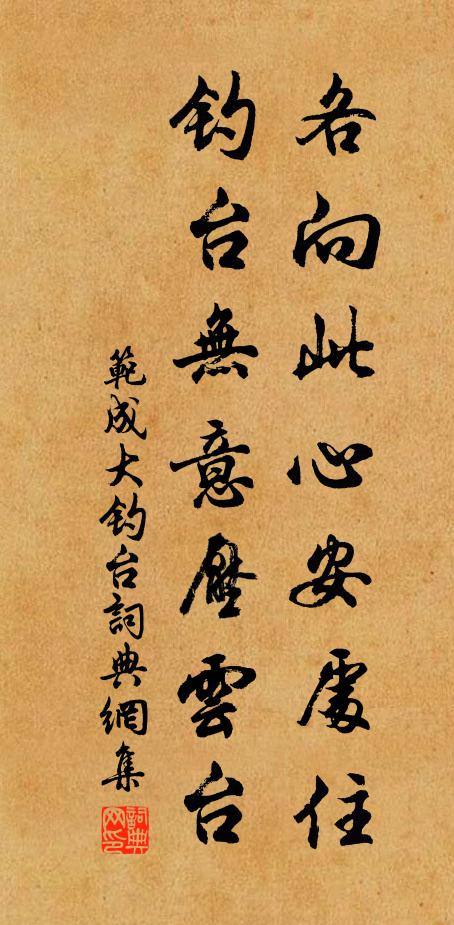 各向此心安處住
钓台無意壓雲台
範成大钓台詞典網集
詞典网印